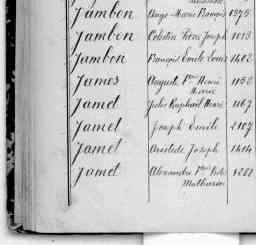 Jambon Ange Marie François 1375
Jambon Célestin Yves Joseph 1013
Jambon François Emile Louis 1402
James Auguste Henri 1150
Marie
Jamet Jules Raphaël Henri 1167
Jamet Joseph Emile 2107
Jamet Aristide Joseph 1404
Jamet Alexandre
Mathurin